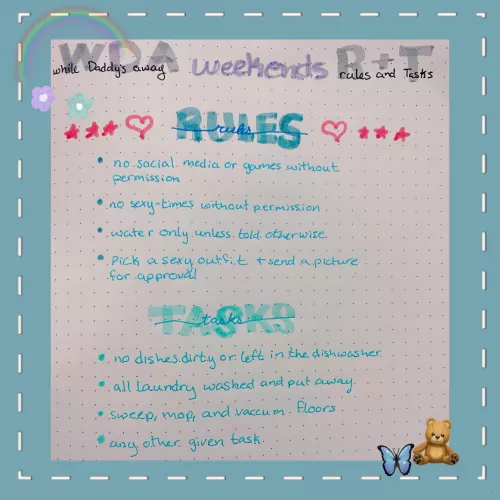 WDA weekends R+T
while Daddy's away rules and Tasks
RULES
rules
no social media or games without
permission
no sexy-times without permission
water only unless told otherwise
Pick a sexy outfit + send a picture
for approval
TASKS
tasks
no dishes dirty or left in the dishwasher
all laundry washed and put away.
sweep, mop, and vaccum floors
any other given task.